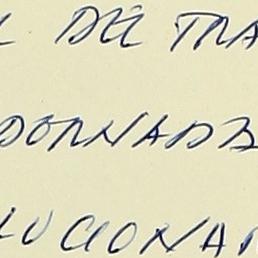 L DEL TRA
DORNADA
LUCIONAR